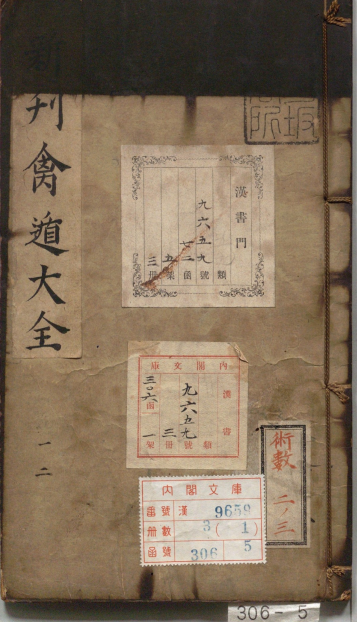 新刊禽遁大全
一
二
漢書門
九六五九
七二
五
三
類 號 函 架 冊
内閣文庫
漢書
九六五九
三
三〇六
一
類 號 冊 函 架
術數
二ノ三
内閣文庫
番號 漢 9659
冊數 3(1)
函號 306 5
306-5